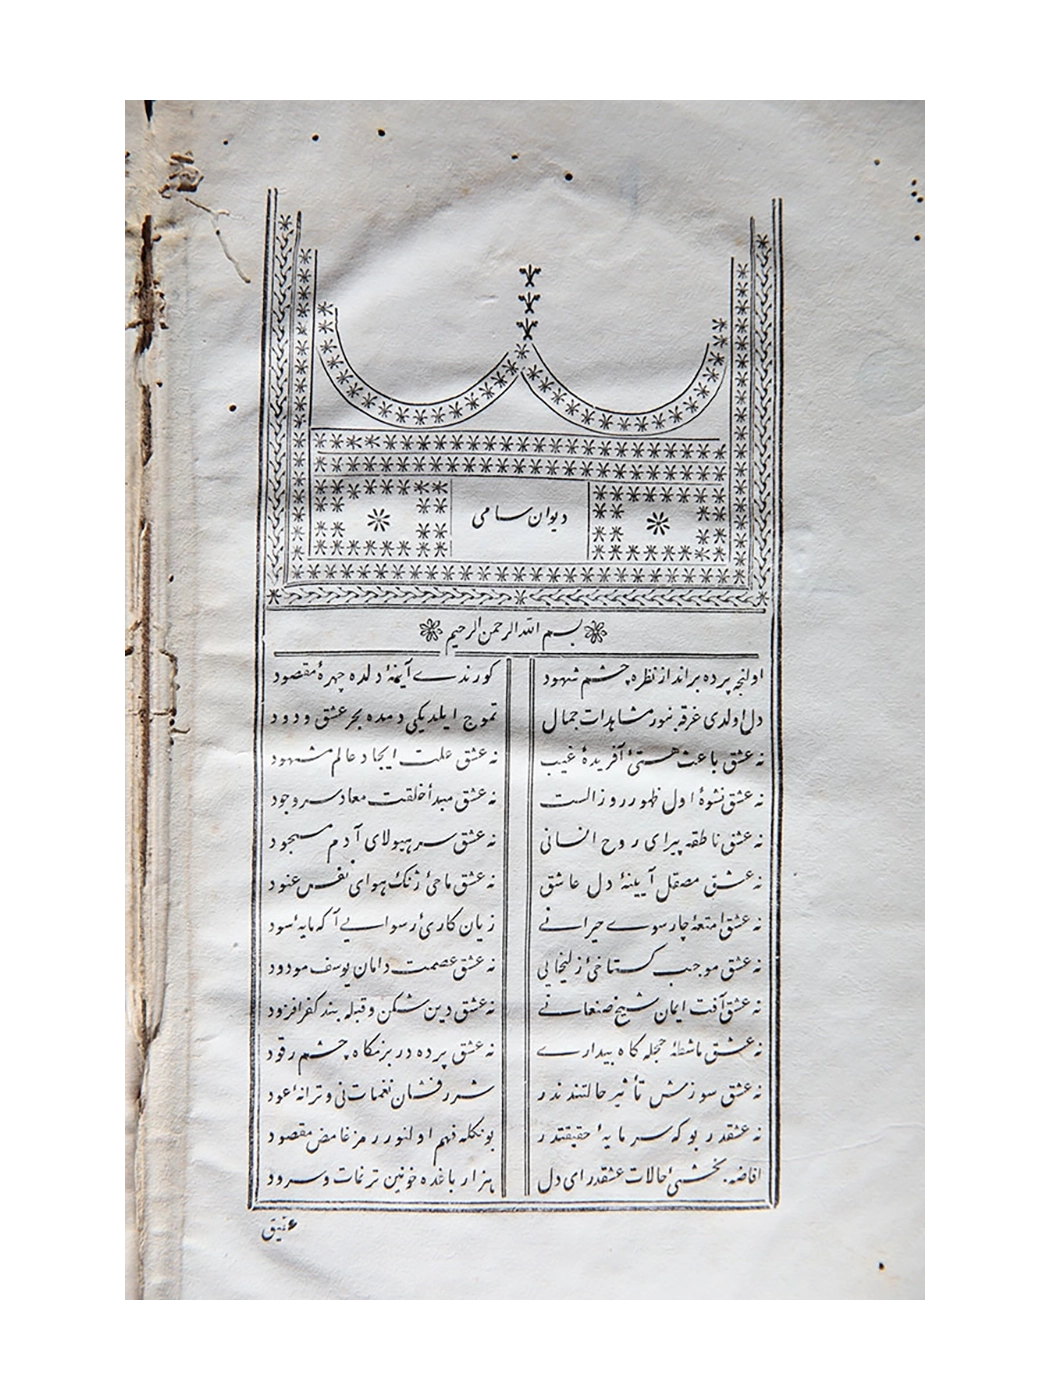 دیوان سامی
بسم الله الرحمن الرحیم
اولنجه پرده برانداز نظره چشم شهود کورندے آیینهٔ دلده چهرهٔ مقصود
دل اولدی غرقه بنور مشاهدات جمال تموج ایلدیکی دمده بحر عشق ودود
نه عشق باعث هستیٔ آفریدهٔ غیب نه عشق علت ایجاد عالم مشهود
نه عشق نشوهٔ اول ظهور روز الست نه عشق مبدأ خلقت معاد سر وجود
نه عشق ناطقه پیرای روح انسانی نه عشق سر هیولای آدم مسجود
نه عشق مصقل آیینهٔ دل عاشق نه عشق ماحیٔ ژنک هوای نفس عنود
نه عشق امتعهٔ چارسوے حیرانے زیان کاریٔ رسوایے آکه مایه سود
نه عشق موجب کستاخیٔ زلیخایی نه عشق عصمت دامان یوسف مودود
نه عشق آفت ایمان شیخ صنعانے نه عشق دین شکن و قبله بند کفر افزود
نه عشق ماشطهٔ حجله کاه بیدارے نه عشق پرده در بزمکاه چشم رقود
نه عشق سوزش تأثیر حالتندندر شررفشان نغمات نی و ترانهٔ عود
نه عشقدر بو که سرمایهٔ حقیقتدر بونکله فهم اولنور رمز غامض مقصود
افاضه بخشیٔ حالات عشقدر ای دل هزار باغده خونین ترنمات و سرود